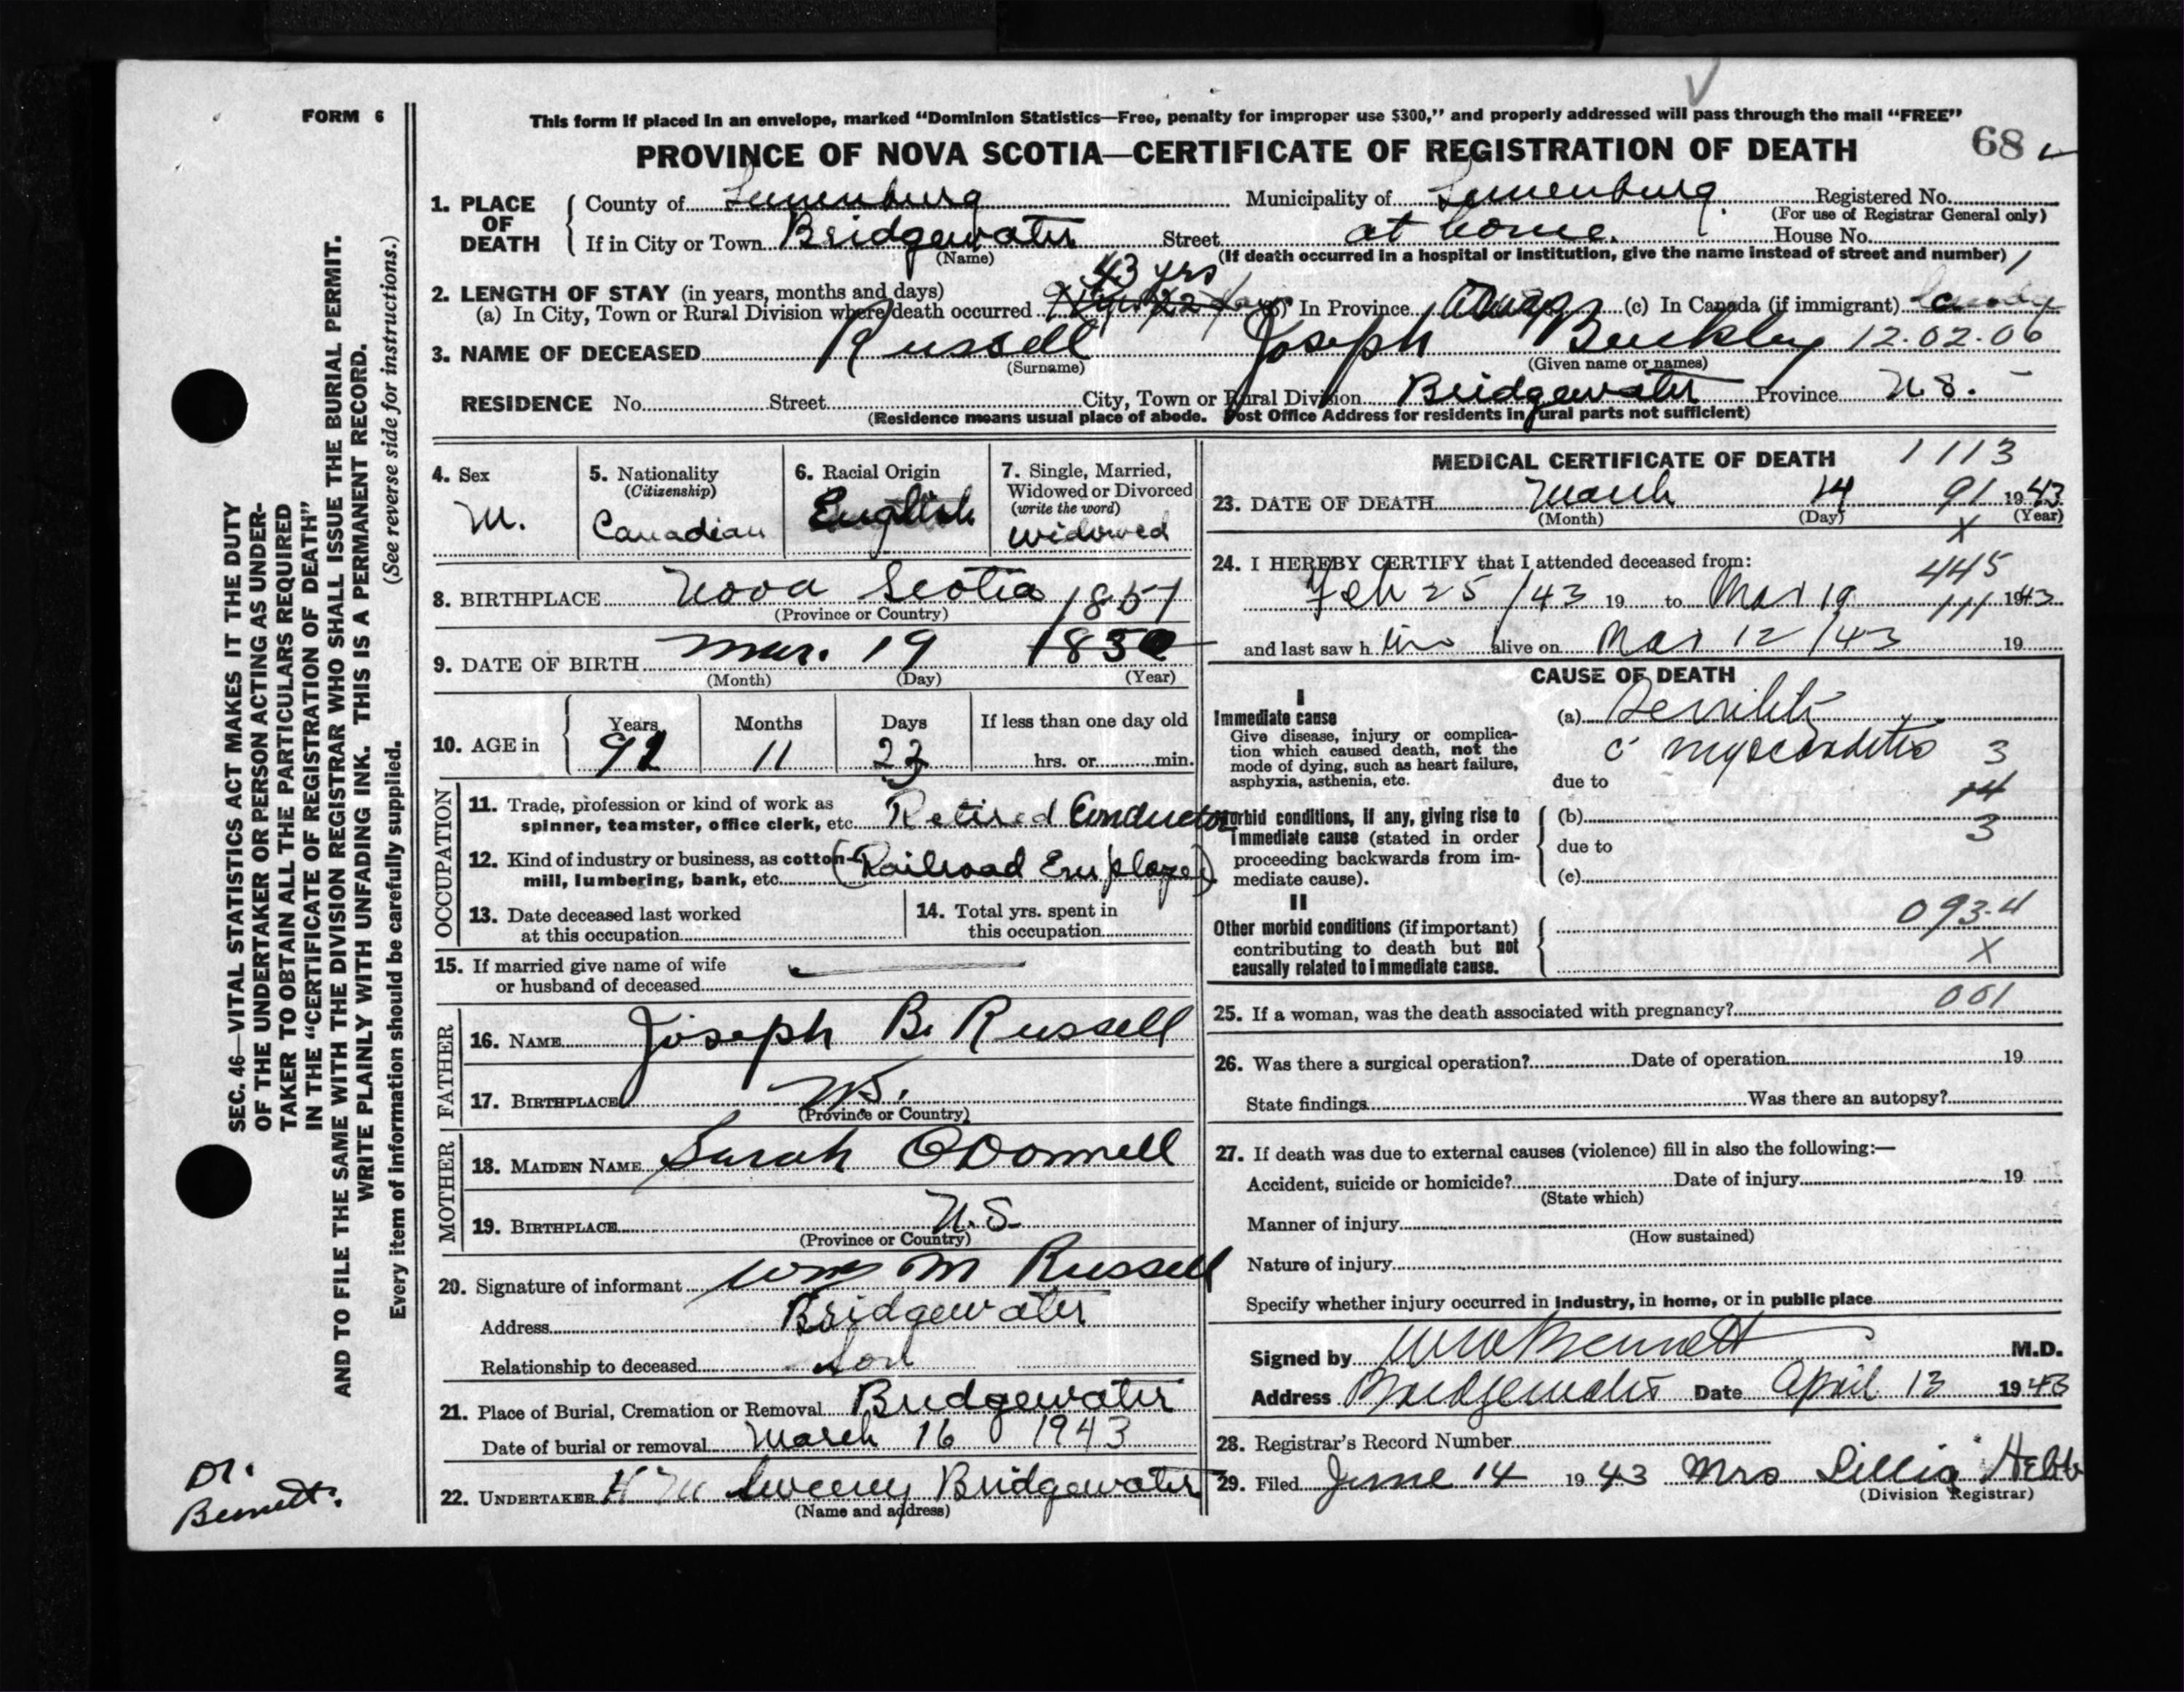 FORM 6
This form if placed in an envelope, marked "Dominion Statistics—Free, penalty for improper use $300," and properly addressed will pass through the mail "FREE"
PROVINCE OF NOVA SCOTIA—CERTIFICATE OF REGISTRATION OF DEATH 68
1. PLACE OF DEATH
County of Lunenburg Municipality of Lunenburg Registered No.
(For use of Registrar General only)
If in City or Town Bridgewater Street at home. House No.
(Name) (If death occurred in a hospital or institution, give the name instead of street and number)
43 yrs
2. LENGTH OF STAY (in years, months and days)
(a) In City, Town or Rural Division where death occurred (b) In Province always (c) In Canada (if immigrant)
3. NAME OF DECEASED Russell Joseph Buckley 12.02.06
(Surname) (Given name or names)
RESIDENCE No. Street City, Town or Rural Division Bridgewater Province N.S.
(Residence means usual place of abode. Post Office Address for residents in rural parts not sufficient)
4. Sex
M.
5. Nationality
(Citizenship)
Canadian
6. Racial Origin
English
7. Single, Married,
Widowed or Divorced
(write the word)
widowed
8. BIRTHPLACE Nova Scotia
(Province or Country)
1851
9. DATE OF BIRTH Mar. 19
(Month) (Day) (Year)
10. AGE in
Years Months Days If less than one day old
11 hrs. or min.
OCCUPATION
11. Trade, profession or kind of work as
spinner, teamster, office clerk, etc. Retired Conductor
12. Kind of industry or business, as cotton-
mill, lumbering, bank, etc. (Railroad Employee)
13. Date deceased last worked
at this occupation
14. Total yrs. spent in
this occupation
15. If married give name of wife
or husband of deceased
FATHER
16. NAME Joseph B. Russell
17. BIRTHPLACE
(Province or Country)
MOTHER
18. MAIDEN NAME Sarah O'Donnell
19. BIRTHPLACE N.S.
(Province or Country)
20. Signature of informant Wm M Russell
Address Bridgewater
Relationship to deceased Son
21. Place of Burial, Cremation or Removal Bridgewater
Date of burial or removal March 16 1943
22. UNDERTAKER Sweeny Bridgewater
(Name and address)
MEDICAL CERTIFICATE OF DEATH 1113
23. DATE OF DEATH March 14 91 1943
(Month) (Day) (Year)
X
24. I HEREBY CERTIFY that I attended deceased from:
445
Feb 25/43 19 to Mar 1943
111
and last saw h im alive on Mar 12/43 19
CAUSE OF DEATH
I
Immediate cause
Give disease, injury or complica-
tion which caused death, not the
mode of dying, such as heart failure,
asphyxia, asthenia, etc.
(a) Senility
c myocarditis 3
due to
14
Morbid conditions, if any, giving rise to
immediate cause (stated in order
proceeding backwards from im-
mediate cause).
(b)
3
due to
(c)
II
Other morbid conditions (if important)
contributing to death but not
causally related to immediate cause.
093.4
X
001
25. If a woman, was the death associated with pregnancy?
26. Was there a surgical operation? Date of operation 19
State findings Was there an autopsy?
27. If death was due to external causes (violence) fill in also the following:—
Accident, suicide or homicide? Date of injury 19
(State which)
Manner of injury
(How sustained)
Nature of injury
Specify whether injury occurred in industry, in home, or in public place
Signed by Bennett M.D.
Address Bridgewater Date April 13 1943
28. Registrar's Record Number
29. Filed June 14 1943 Mrs Lillia Hebb
(Division Registrar)
SEC. 46—VITAL STATISTICS ACT MAKES IT THE DUTY
OF THE UNDERTAKER OR PERSON ACTING AS UNDER-
TAKER TO OBTAIN ALL THE PARTICULARS REQUIRED
IN THE "CERTIFICATE OF REGISTRATION OF DEATH"
AND TO FILE THE SAME WITH THE DIVISION REGISTRAR WHO SHALL ISSUE THE BURIAL PERMIT.
WRITE PLAINLY WITH UNFADING INK. THIS IS A PERMANENT RECORD.
Every item of information should be carefully supplied. (See reverse side for instructions.)
Dr.
Bennett.